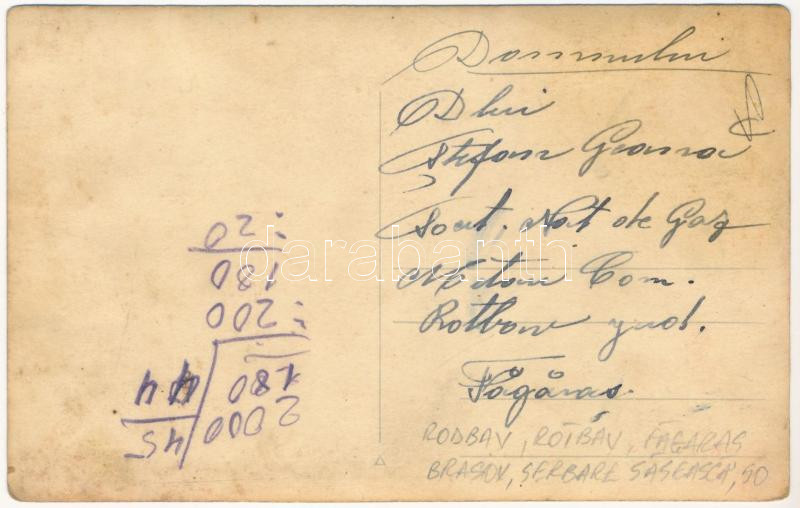 Domnului
Dlui
Ștefan Geamă
Soct. Nat de Gaz
Metan Com.
Rotbav jud.
Făgăraș
RODBAV, ROTBAV, FAGARAS
BRASOV, SERBARE SĂSEASCĂ, SO
2000 | 45
180 44
200 :
180
20 :
darabanth